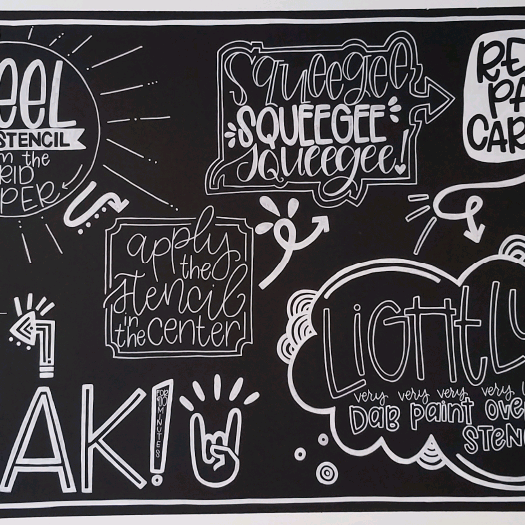 EEL
STENCIL
m the
RID
PER
Squeegee
SQUEEGEE
squeegee!
RE
PA
CAR
apply
the
stencil
in
the center
LIGHTLY
very very very very
Dab paint over
STEN
AK!
FOR 10 MINUTES